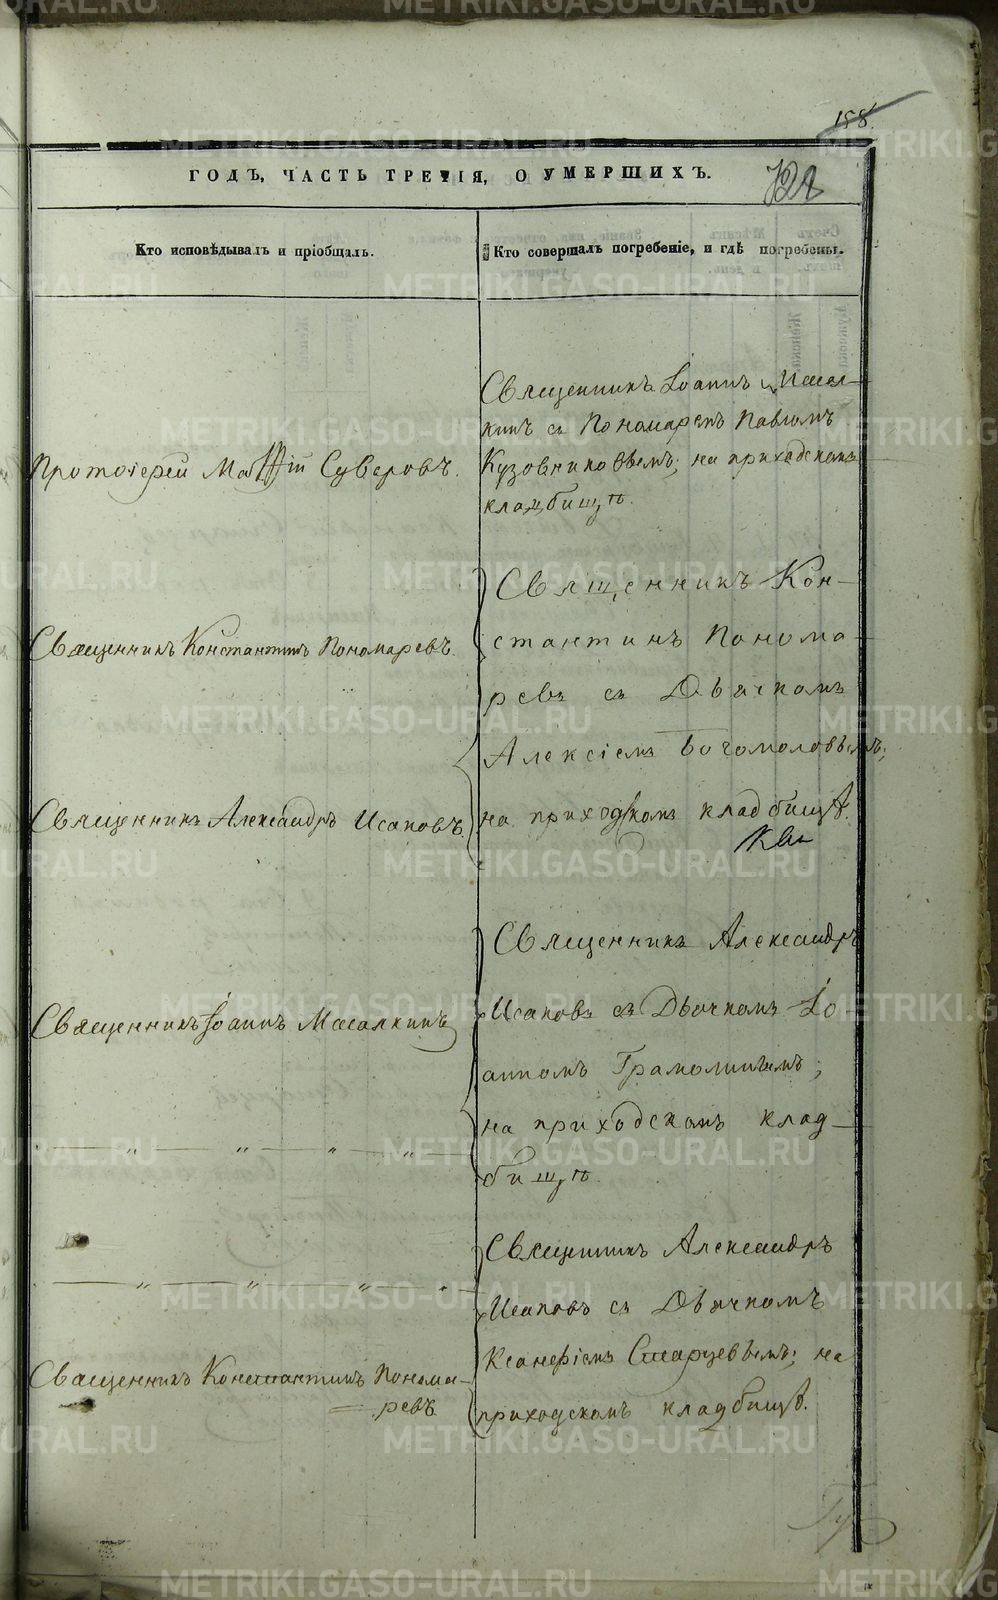 METRIKI.GASO-URAL.RU
188.
ГОДЪ, ЧАСТЬ ТРЕТІЯ, О УМЕРШИХЪ.
Кто исповѣдывалъ и пріобщалъ.
Кто совершалъ погребеніе, и гдѣ погребены.
Священникъ Іоаннъ Масал-
кинъ съ Пономаремъ Павломъ
Кузовниковымъ; на приходскомъ
кладбищѣ.
Протоіерей Матѳій Суверовъ.
Священникъ Кон-
стантинъ Понома-
ревъ съ Дьячкомъ
Алексіемъ Богомоловымъ;
на приходскомъ кладбищѣ.
Священникъ Константинъ Пономаревъ.
Священникъ Александръ Исаковъ.
Священникъ Александръ
Исаковъ съ Дьячкомъ Іо-
анномъ Грамолинымъ;
на приходскомъ клад-
бищѣ.
Священникъ Іоаннъ Масалкинъ
— „ — „ — „ — „ —
Священникъ Александръ
Исаковъ съ Дьячкомъ
Ксанѳіемъ Старцевымъ; на
приходскомъ кладбищѣ.
— „ — „ — „ — „
Священникъ Константинъ Понома-
ревъ